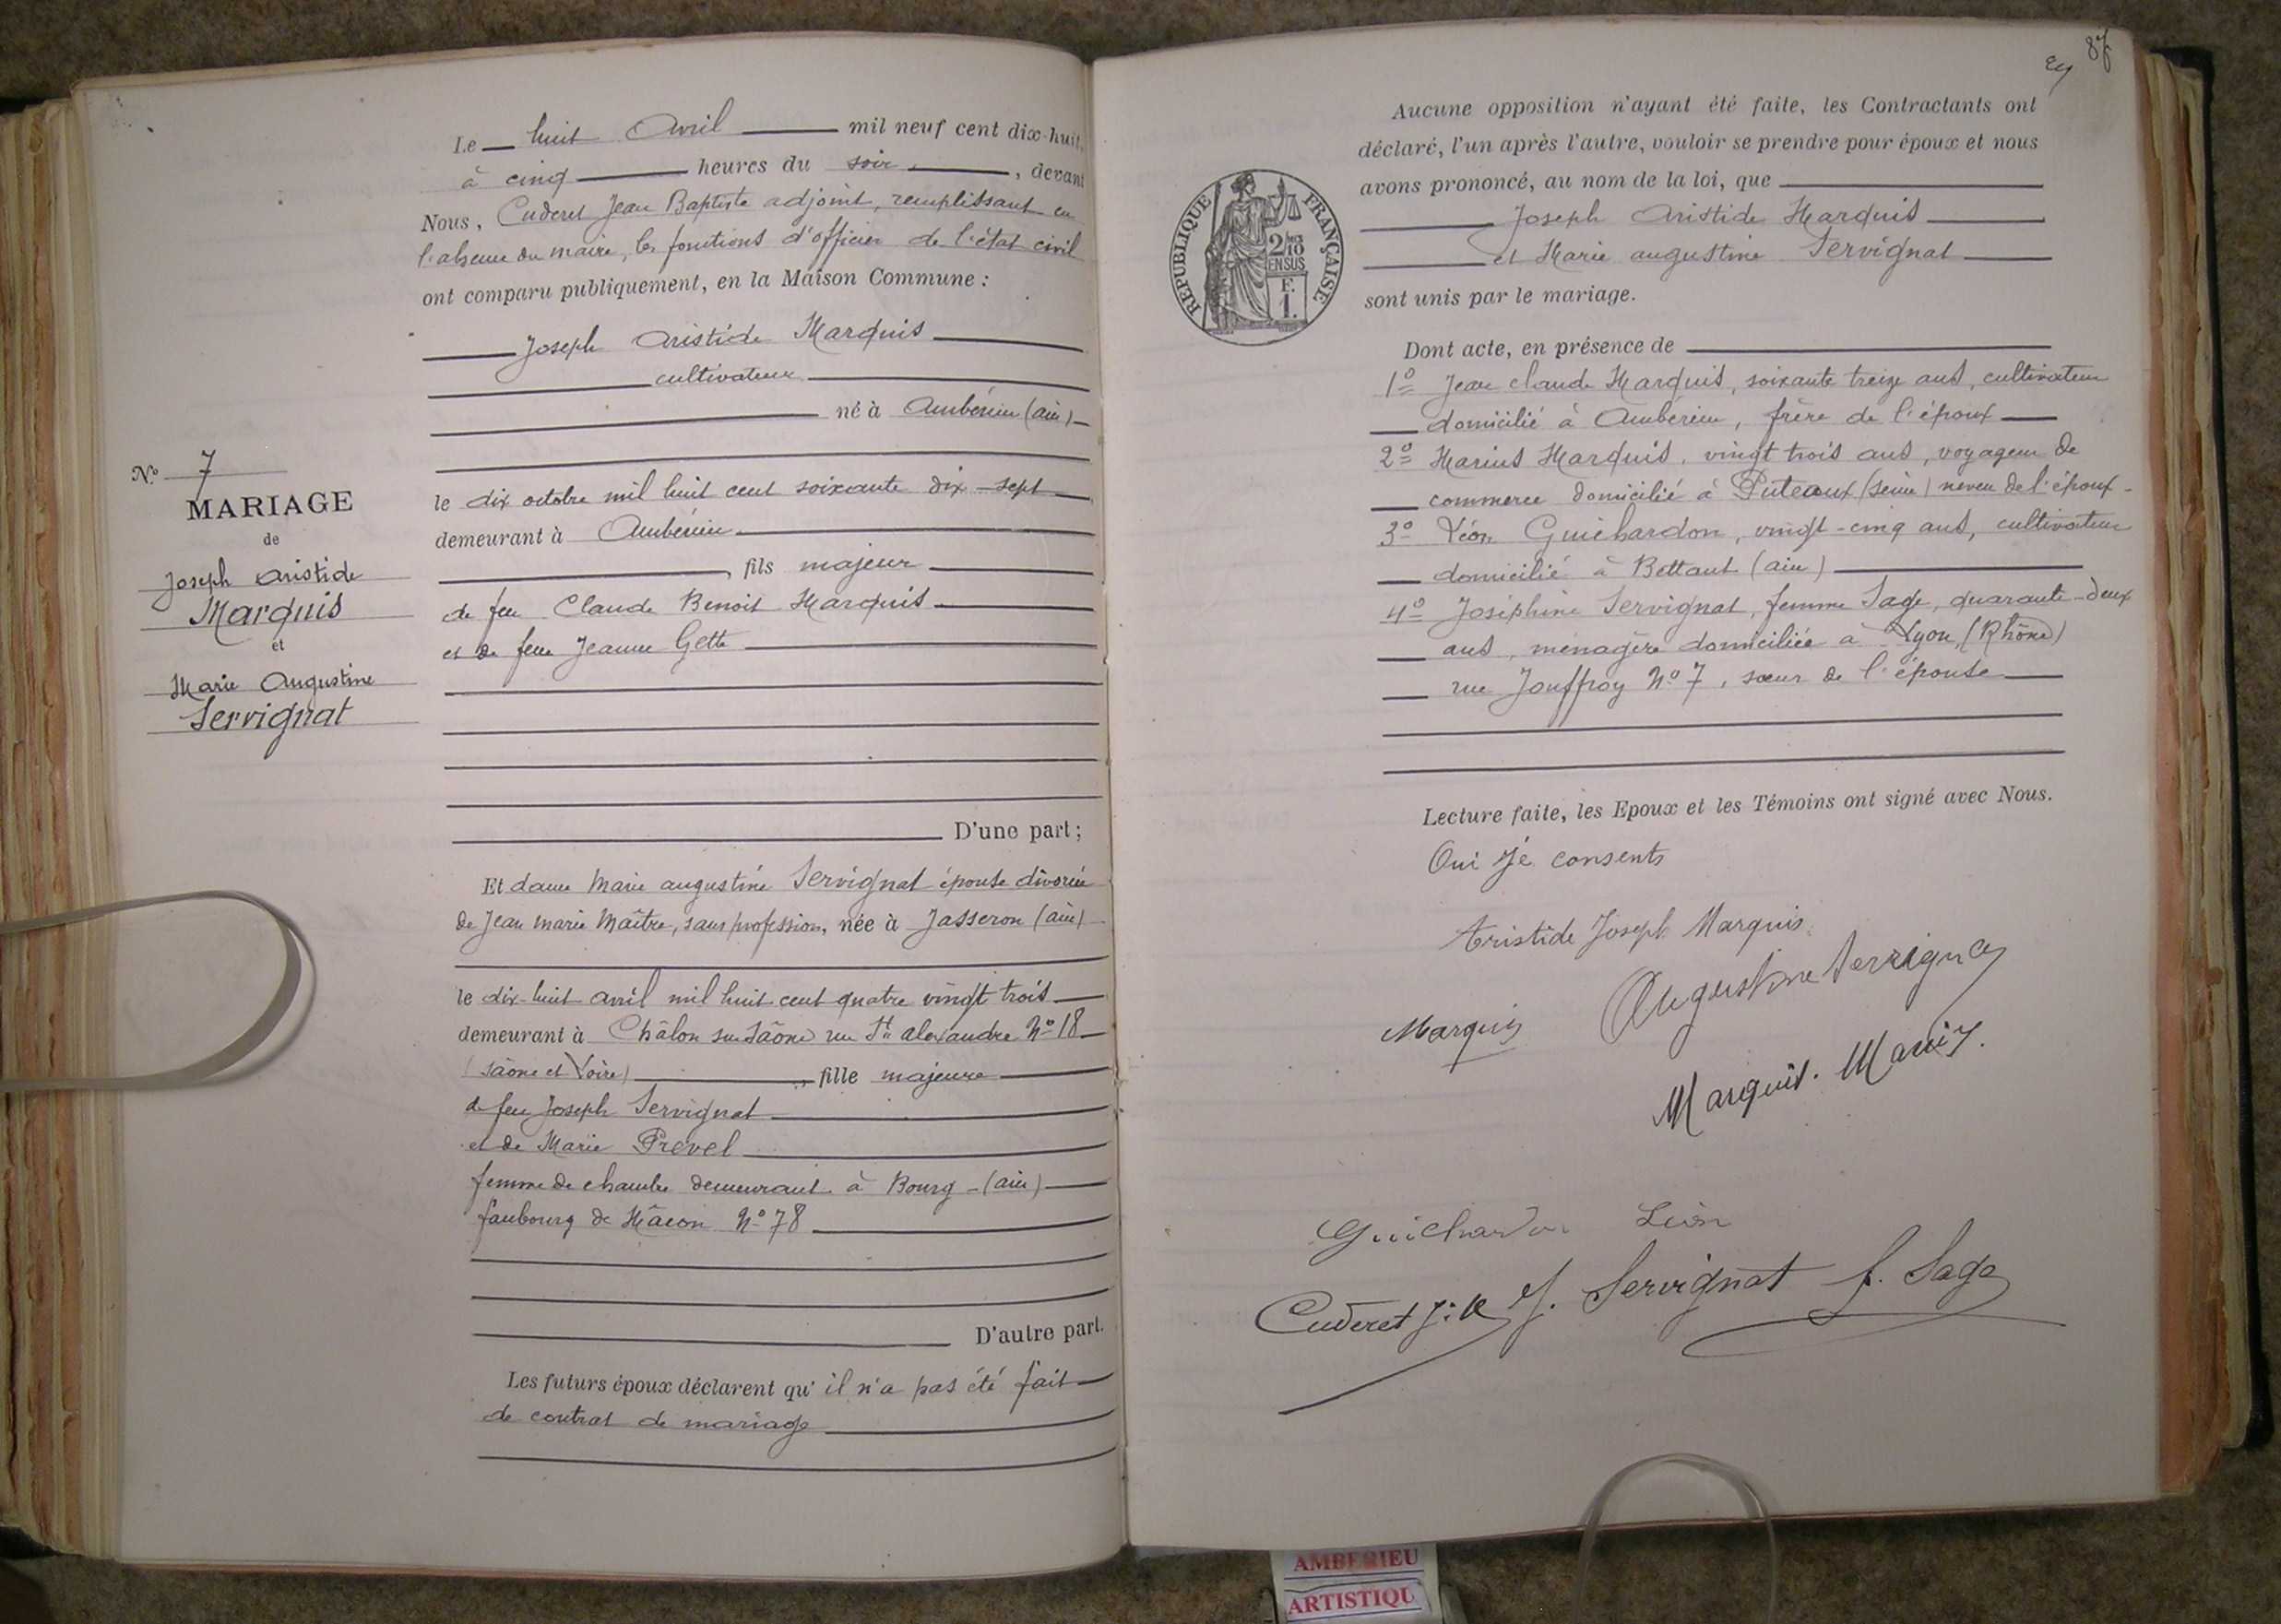 Le huit Avril mil neuf cent dix-huit,
à cinq heures du soir, devant
Nous, Cuderet Jean Baptiste adjoint, remplissant en
l'absence du maire, les fonctions d'officier de l'état civil
ont comparu publiquement, en la Maison Commune :
Joseph Aristide Marquis
cultivateur
né à Ambérieu (ain)
le dix octobre mil huit cent soixante dix-sept
demeurant à Ambérieu
, fils majeur
de feu Claude Benoit Marquis
et de feue Jeanne Gette
D'une part ;
N° 7
MARIAGE
de
Joseph Aristide
Marquis
et
Marie Augustine
Servignat
Et dame Marie augustine Servignat épouse divorcée
de Jean marie Maître, sans profession, née à Jasseron (ain)
le dix-huit avril mil huit cent quatre vingt trois
demeurant à Châlon sur Saône rue St alexandre N° 18
(Saône et Loire), fille majeure
de feu Joseph Servignat
et de Marie Prevel
femme de chambre demeurant à Bourg - (ain)
faubourg de Mâcon N° 78
D'autre part.
Les futurs époux déclarent qu'il n'a pas été fait
de contrat de mariage
87
Aucune opposition n'ayant été faite, les Contractants ont
déclaré, l'un après l'autre, vouloir se prendre pour époux et nous
avons prononcé, au nom de la loi, que
Joseph Aristide Marquis
et Marie augustine Servignat
sont unis par le mariage.
RÉPUBLIQUE FRANÇAISE
2/10
EN SUS
F.
1.
Dont acte, en présence de
1° Jean claude Marquis, soixante treize ans, cultivateur
domicilié à Amberieu, frère de l'époux
2° Marius Marquis, vingt trois ans, voyageur de
commerce domicilié à Puteaux (Seine) neveu de l'époux
3° Léon Guichardon, vingt-cinq ans, cultivateur
domicilié à Bettant (ain)
4° Joséphine Servignat, femme Sage, quarante-deux
ans, ménagère domiciliée à Lyon, (Rhône)
rue Jouffroy N° 7, sœur de l'épouse
Lecture faite, les Epoux et les Témoins ont signé avec Nous.
Oui Je consents
Aristide Joseph Marquis
Augustine Servignat
Marquis
Marquis. Marius.
Guichardon Léon
Cuderet J. B. J. Servignat f. Sage
AMBERIEU
ARTISTIQU